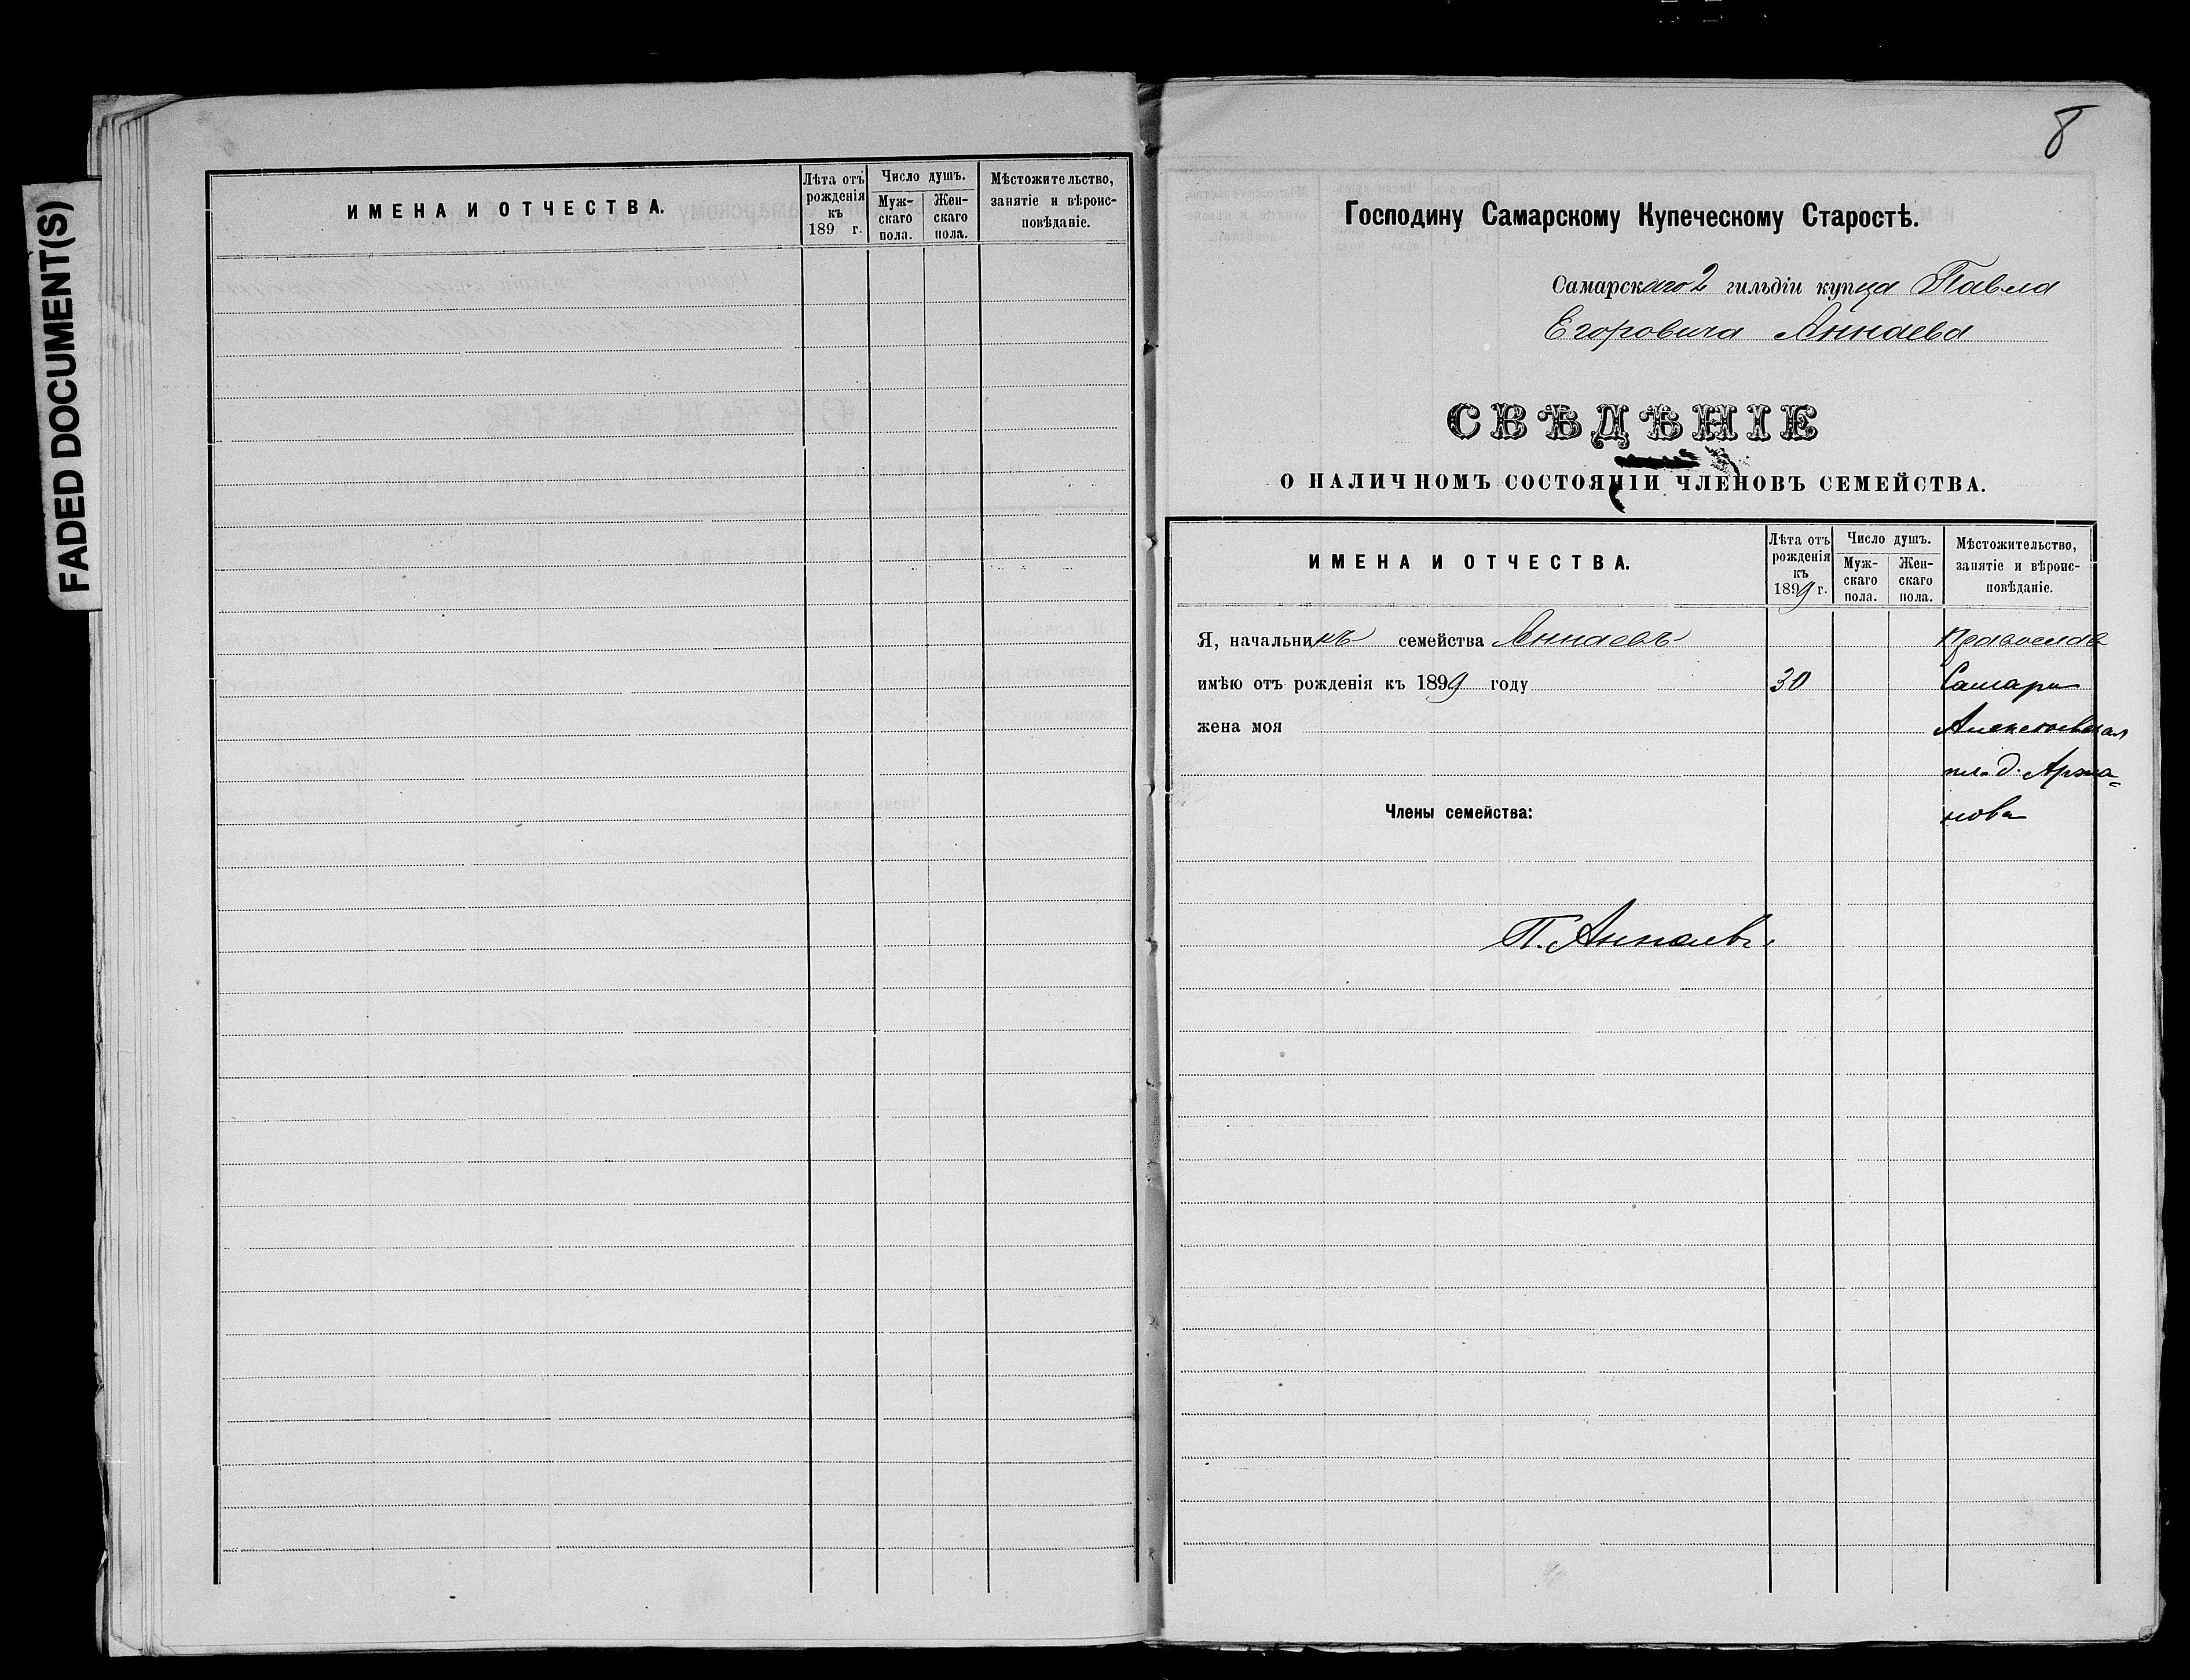 FADED DOCUMENT(S)
ИМЕНА И ОТЧЕСТВА.
Лѣта отъ рожденія къ 189 г.
Число душъ.
Мужскаго пола.
Женскаго пола.
Мѣстожительство, занятіе и вѣроисповѣданіе.
8
Господину Самарскому Купеческому Старостѣ.
Самарскаго 2 гильдіи купца Павла
Егоровича Аннаева
СВѢДѢНІЕ
О НАЛИЧНОМЪ СОСТОЯНІИ ЧЛЕНОВЪ СЕМЕЙСТВА.
ИМЕНА И ОТЧЕСТВА.
Лѣта отъ рожденія къ 1899 г.
Число душъ.
Мужскаго пола.
Женскаго пола.
Мѣстожительство, занятіе и вѣроисповѣданіе.
Я, начальникъ семейства Аннаевъ Православ
имѣю отъ рожденія къ 1899 году 30 Самара
жена моя Алексѣевская
пл. д. Аржа=
Члены семейства: нова
П. Аннаевъ